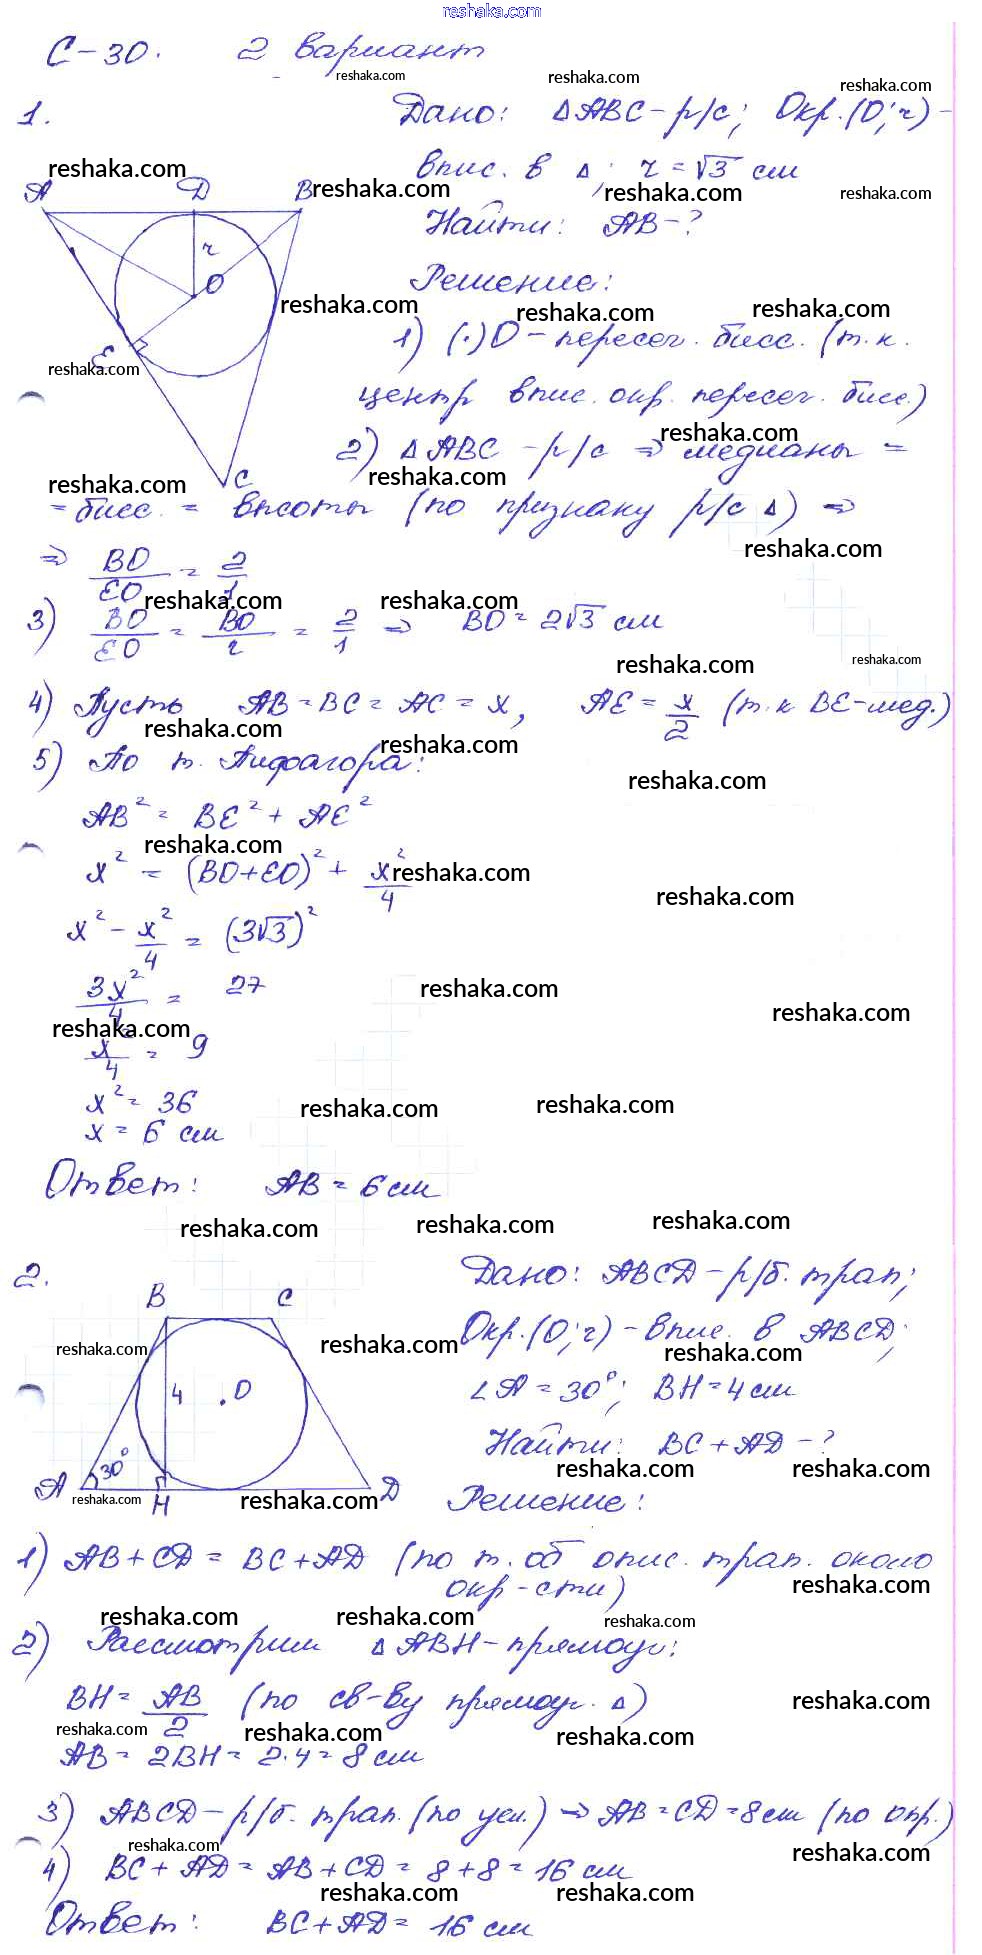 reshaka.com
С-30. 2 вариант
1.
Дано: △ABC - р/с; Окр.(O; r) -
впис. в △; r = √3 см
Найти: AB - ?
Решение:
1) (·) O - пересеч. бисс. (т.к.
центр впис. окр. пересеч. бисс.)
2) △ABC - р/с ⇒ медианы =
= бисс. = высоты (по признаку р/с △) ⇒
⇒ BO/EO = 2/1
3) BO/EO = BO/r = 2/1 ⇒ BO = 2√3 см
4) Пусть AB = BC = AC = x, AE = x/2 (т.к BE - мед.)
5) По т. Пифагора:
AB² = BE² + AE²
x² = (BO + EO)² + x²/4
x² - x²/4 = (3√3)²
3x²/4 = 27
x²/4 = 9
x² = 36
x = 6 см
Ответ: AB = 6 см
A D B
r
O
E
C
2.
Дано: ABCD - р/б. трап;
Окр.(O; r) - впис. в ABCD;
∠A = 30°; BH = 4 см
Найти: BC + AD - ?
Решение:
B C
4 O
30°
A H D
1) AB + CD = BC + AD (по т. об опис. трап. около
окр-сти)
2) Рассмотрим △ABH - прямоуг:
BH = AB/2 (по св-ву прямоуг. △)
AB = 2BH = 2·4 = 8 см
3) ABCD - р/б. трап. (по усл.) ⇒ AB = CD = 8 см (по опр.)
4) BC + AD = AB + CD = 8 + 8 = 16 см
Ответ: BC + AD = 16 см